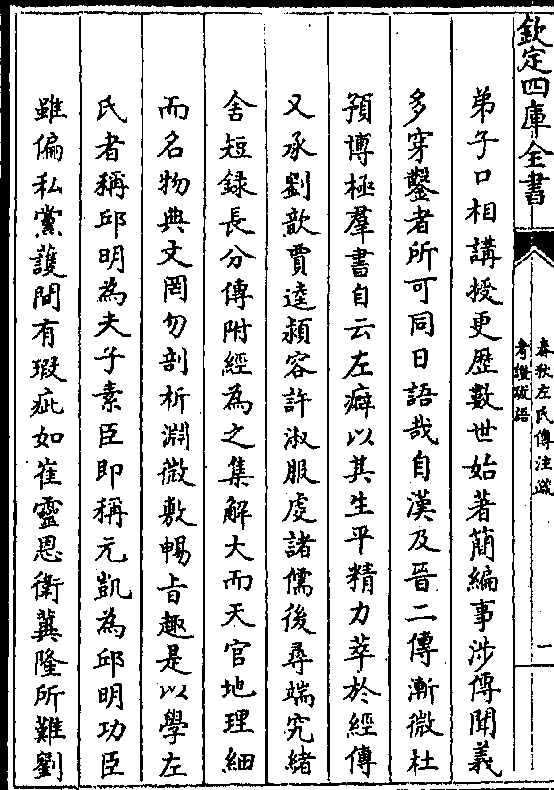 欽定四庫全書
春秋左氏傳注疏
考證跋語
一
弟子口相講授更歴數世始著簡編事涉傳聞義
多穿鑿者所可同日語哉自漢及晉二傳漸微杜
預博極羣書自云左癖以其生平精力萃於經傳
又承劉歆賈逵潁容許淑服虔諸儒後尋端究緒
舍短録長分傳附經為之集解大而天官地理細
而名物典文罔勿剖析淵微敷暢旨趣是以學左
氏者稱邱明為夫子素臣即稱元凱為邱明功臣
雖偏私黨護間有瑕疵如崔靈恩衛冀隆所難劉